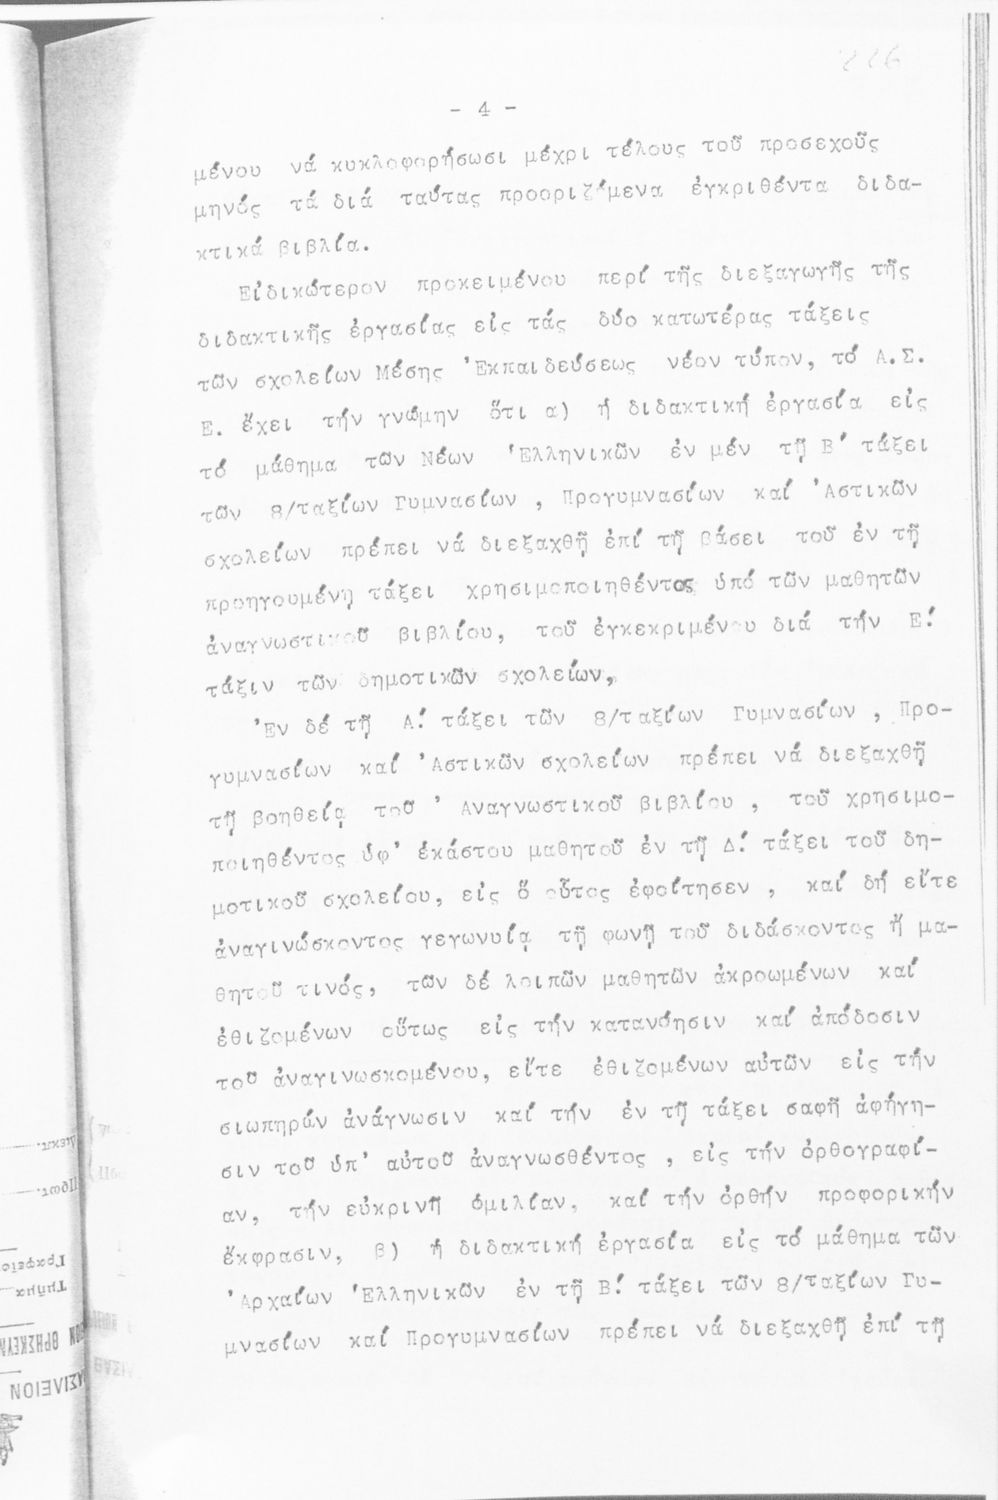 226
- 4 -
μένου νά κυκλοφορήσωσι μέχρι τέλους τοῦ προσεχοῦς
μηνός τά διά ταύτας προοριζόμενα ἐγκριθέντα διδα-
κτικά βιβλία.
Εἰδικώτερον προκειμένου περί τῆς διεξαγωγῆς τῆς
διδακτικῆς ἐργασίας εἰς τάς δύο κατωτέρας τάξεις
τῶν σχολείων Μέσης Ἐκπαιδεύσεως νέον τύπον, τό Α.Σ.
Ε. ἔχει τήν γνώμην ὅτι α) ἡ διδακτική ἐργασία εἰς
τό μάθημα τῶν Νέων Ἑλληνικῶν ἐν μέν τῇ Β΄ τάξει
τῶν 8/ταξίων Γυμνασίων , Προγυμνασίων καί Ἀστικῶν
σχολείων πρέπει νά διεξαχθῇ ἐπί τῇ βάσει τοῦ ἐν τῇ
προηγουμένῃ τάξει χρησιμοποιηθέντος ὑπό τῶν μαθητῶν
ἀναγνωστικοῦ βιβλίου, τοῦ ἐγκεκριμένου διά τήν Ε΄.
τάξιν τῶν δημοτικῶν σχολείων,
Ἐν δέ τῇ Α΄. τάξει τῶν 8/ταξίων Γυμνασίων , Προ-
γυμνασίων καί Ἀστικῶν σχολείων πρέπει νά διεξαχθῇ
τῇ βοηθείᾳ τοῦ Ἀναγνωστικοῦ βιβλίου , τοῦ χρησιμο-
ποιηθέντος ὑφ' ἑκάστου μαθητοῦ ἐν τῇ Δ΄. τάξει τοῦ δη-
μοτικοῦ σχολείου, εἰς ὅ οὗτος ἐφοίτησεν , καί δή εἴτε
ἀναγινώσκοντος γεγωνυίᾳ τῇ φωνῇ τοῦ διδάσκοντος ἤ μα-
θητοῦ τινός, τῶν δέ λοιπῶν μαθητῶν ἀκροωμένων καί
ἐθιζομένων οὕτως εἰς τήν κατανόησιν καί ἀπόδοσιν
τοῦ ἀναγινωσκομένου, εἴτε ἐθιζομένων αὐτῶν εἰς τήν
σιωπηράν ἀνάγνωσιν καί τήν ἐν τῇ τάξει σαφῆ ἀφήγη-
σιν τοῦ ὑπ' αὐτοῦ ἀναγνωσθέντος , εἰς τήν ὀρθογραφί-
αν, τήν εὐκρινῆ ὁμιλίαν, καί τήν ὀρθήν προφορικήν
ἔκφρασιν, β) ἡ διδακτική ἐργασία εἰς τό μάθημα τῶν
Ἀρχαίων Ἑλληνικῶν ἐν τῇ Β΄. τάξει τῶν 8/ταξίων Γυ-
μνασίων καί Προγυμνασίων πρέπει νά διεξαχθῇ ἐπί τῇ